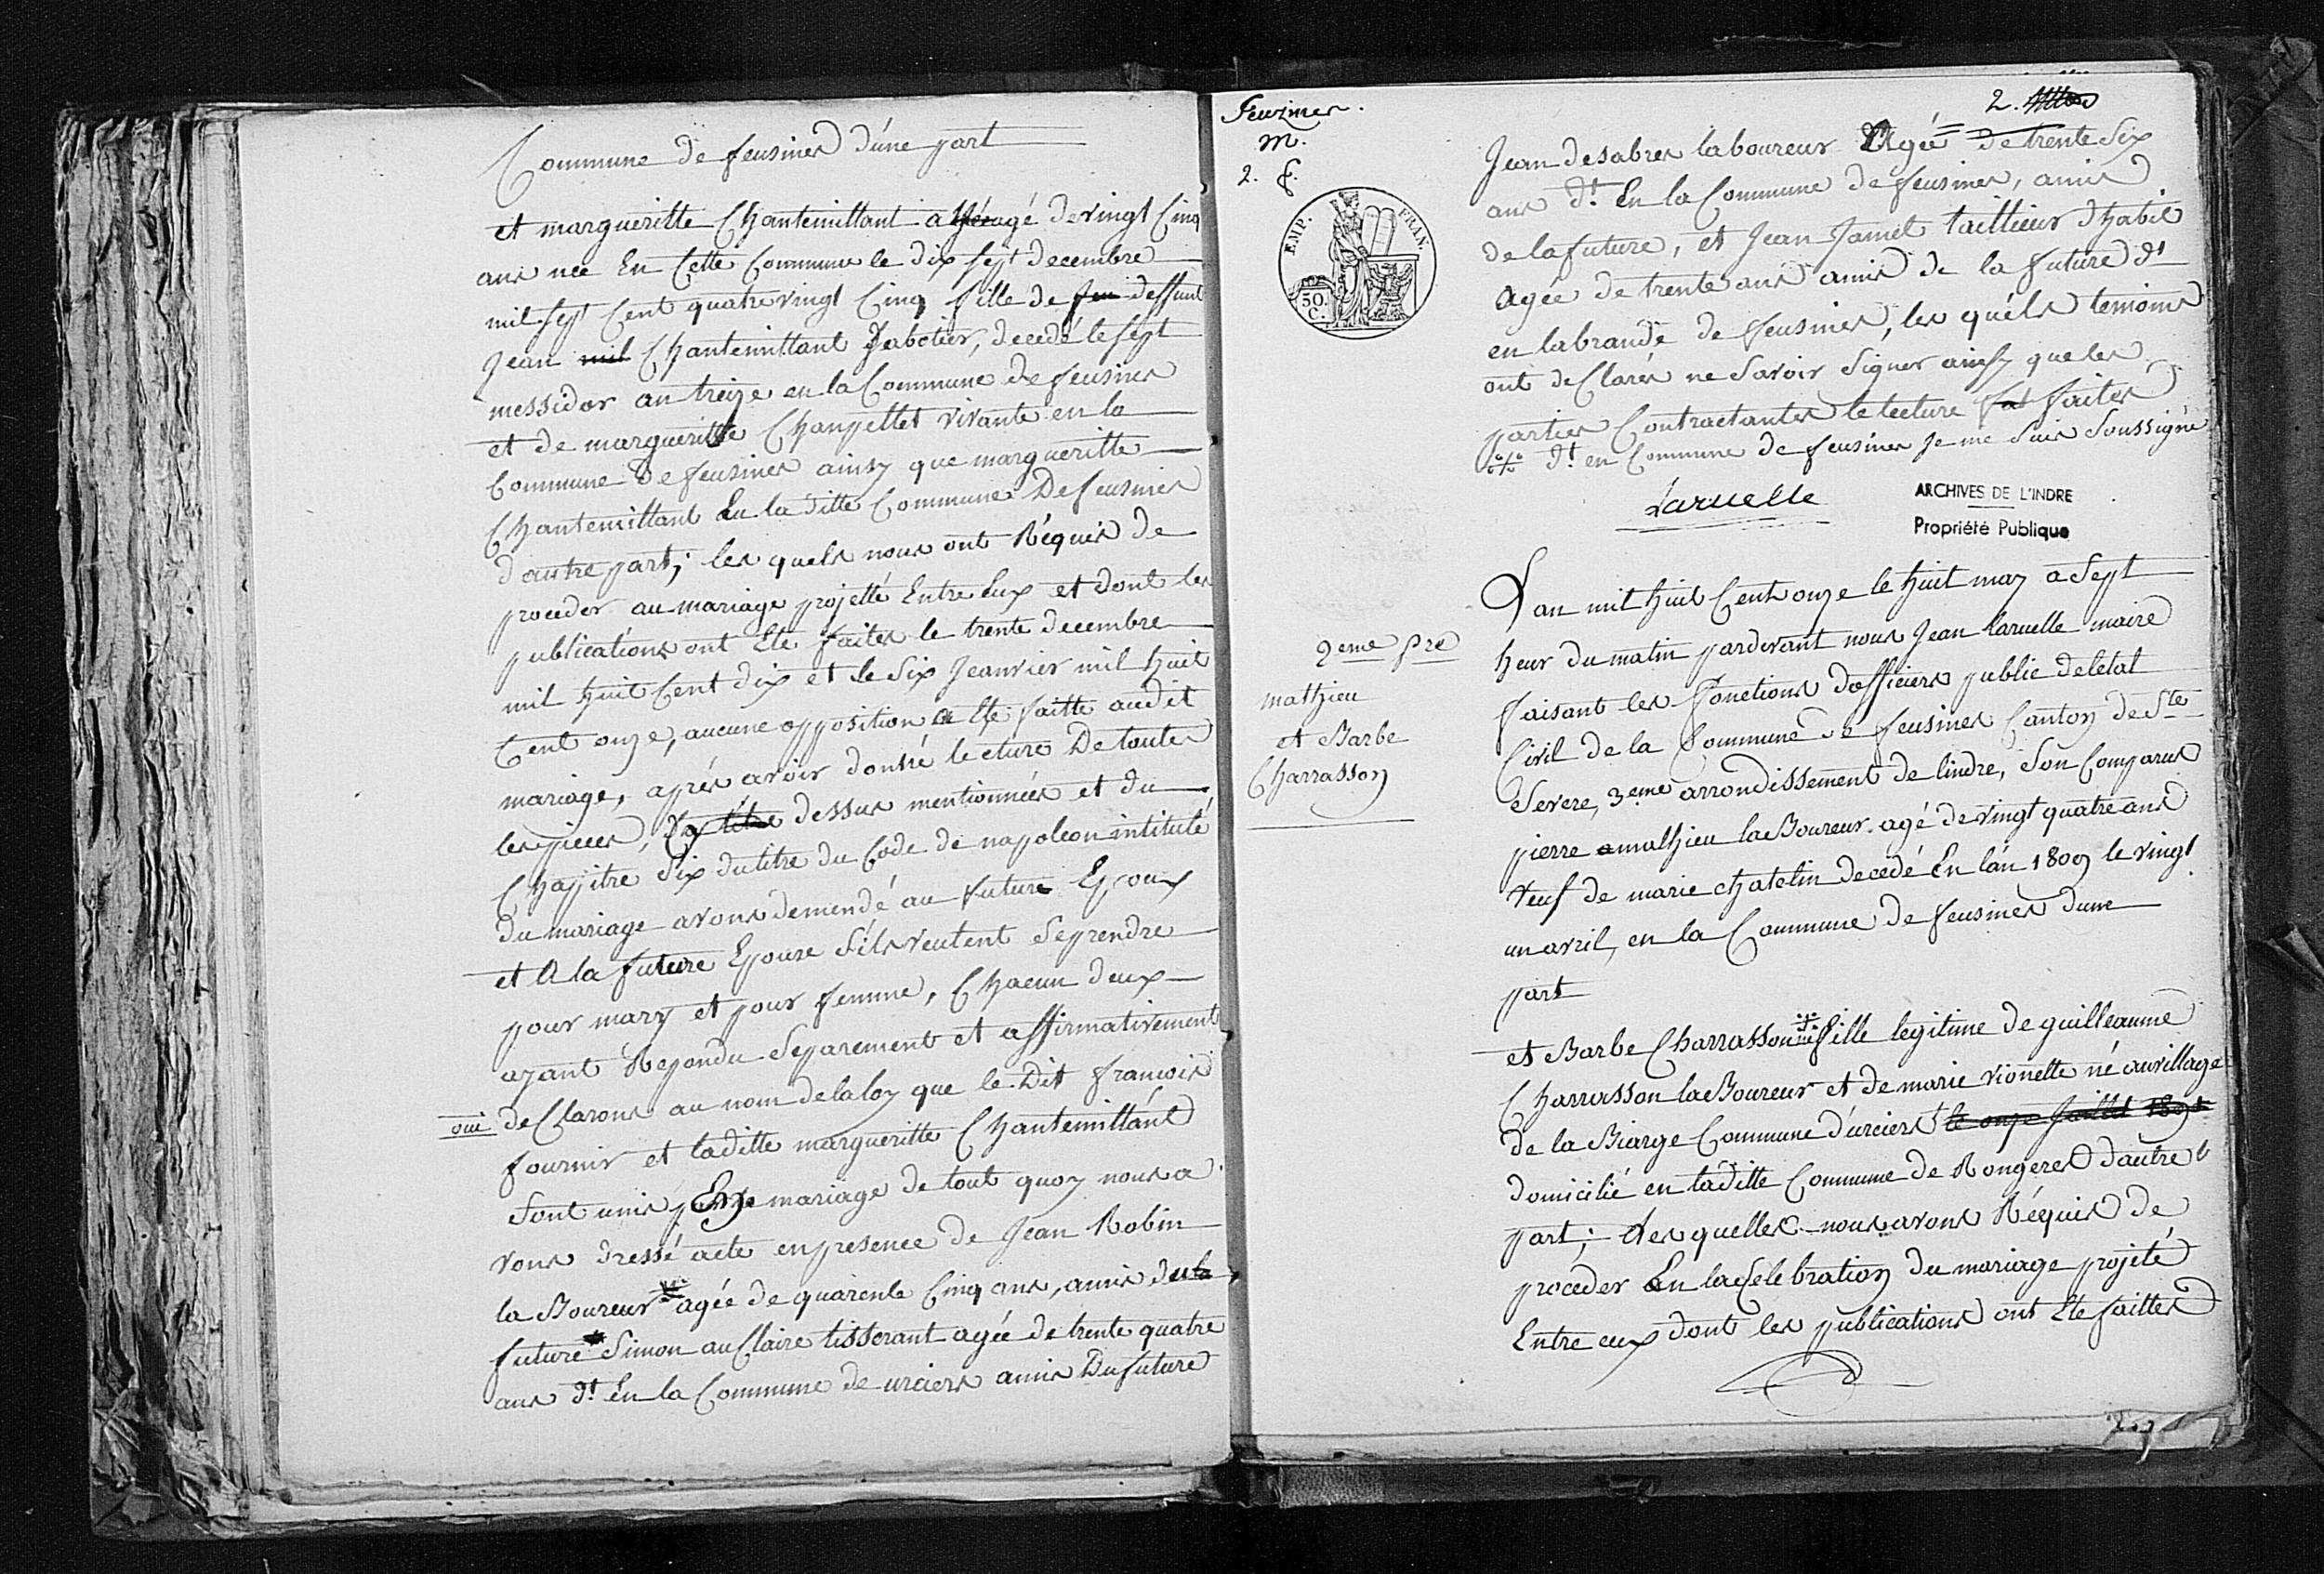 Commune de feusines d'une part
et margueritte Chantemillant agé de vingt Cinq
ans neé En Cette Commune le dix Sept decembre
mil Sept Cent quatre vingt Cinq fille de feu deffunt
Jean mil Chantemillant Sabotier, decedé le Sept
messidor an treize en la Commune de feusines
et de margueritte Champellet vivante en la
Commune de feusines ainsy que margueritte
Chantemillant En la ditte Commune De feusines
d'autre part; les quels nous ont Réquis de
proceder au mariage projetté Entre Eux et dont les
publications ont Eté faites le trente decembre
mil huit Cent dix et le Six Jeanvier mil huit
Cent onze, aucune opposition a Eté faitte audit
mariage, aprés avoir donné lecture De toutes
les pieces, dessus mentionnées et du
Chapitre Six du titre du Code de napoleon intitulé
Du mariage avons demendé au future Epoux
et A la future Epouse S'ils veulent Se prendre
pour mary et pour femme, Chacun deux
ayant Repondu Separement et affirmativement
oui deClarons au nom de la loy que le Dit francois
fournir et laditte margueritte Chantemillant
Sont unis En mariage de tout quoy nous a
vons dressé acte en presence de Jean Robin
la Boureur agée de quarente Cinq ans, amis de la
future Simon auClaire tisserant agée de trente quatre
ans dt En la Commune de urciers amis Du future
Feuzines.
M.
2. f.
2.
EMP. FRAN.
50. C.
Jean desabres laboureur Agée de trente Six
ans dt En la Commune de feusines, amis
de la future, et Jean Jamet taillieur d'habit
Agée de trente ans amis de la future dt
en labrande de feusines, les quéls temoins
ont deClarés ne Savoir Signer ainsy que les
parties Contractantes le lecture fat faites
dt en Commune de feusines Je me Suis Soussigné
Laruelle
ARCHIVES DE L'INDRE
Propriété Publique
2eme pre
mathieu
et Barbe
Charrasson
L'an mil huit Cent onze le huit may a Sept
heur du matin pardevant nous Jean laruelle maire
faisant les fonctions dofficiers public de letat
Civil de la Commune de feusines Canton de Ste
Severe, 3eme arrondissement de lindre, Son Comparus
pierre mathieu laBoureur agé de vingt quatre ans
veuf de marie chatelin decedé En l'an 1809 le vingt
un avril, en la Commune de feusines d'une
part
et Barbe Charrasson fille legitime de guilleaume
Charrasson laBoureur et de marie vionette né au village
de la Biarge Commune d'urciers le onze Juillet
domicilié en laditte Commune de Rongeres d'autre
part; des quelles nous avons Réquis de
proceder En la Celebration du mariage projeté
Entre eux dont les publications ont Eté faittes